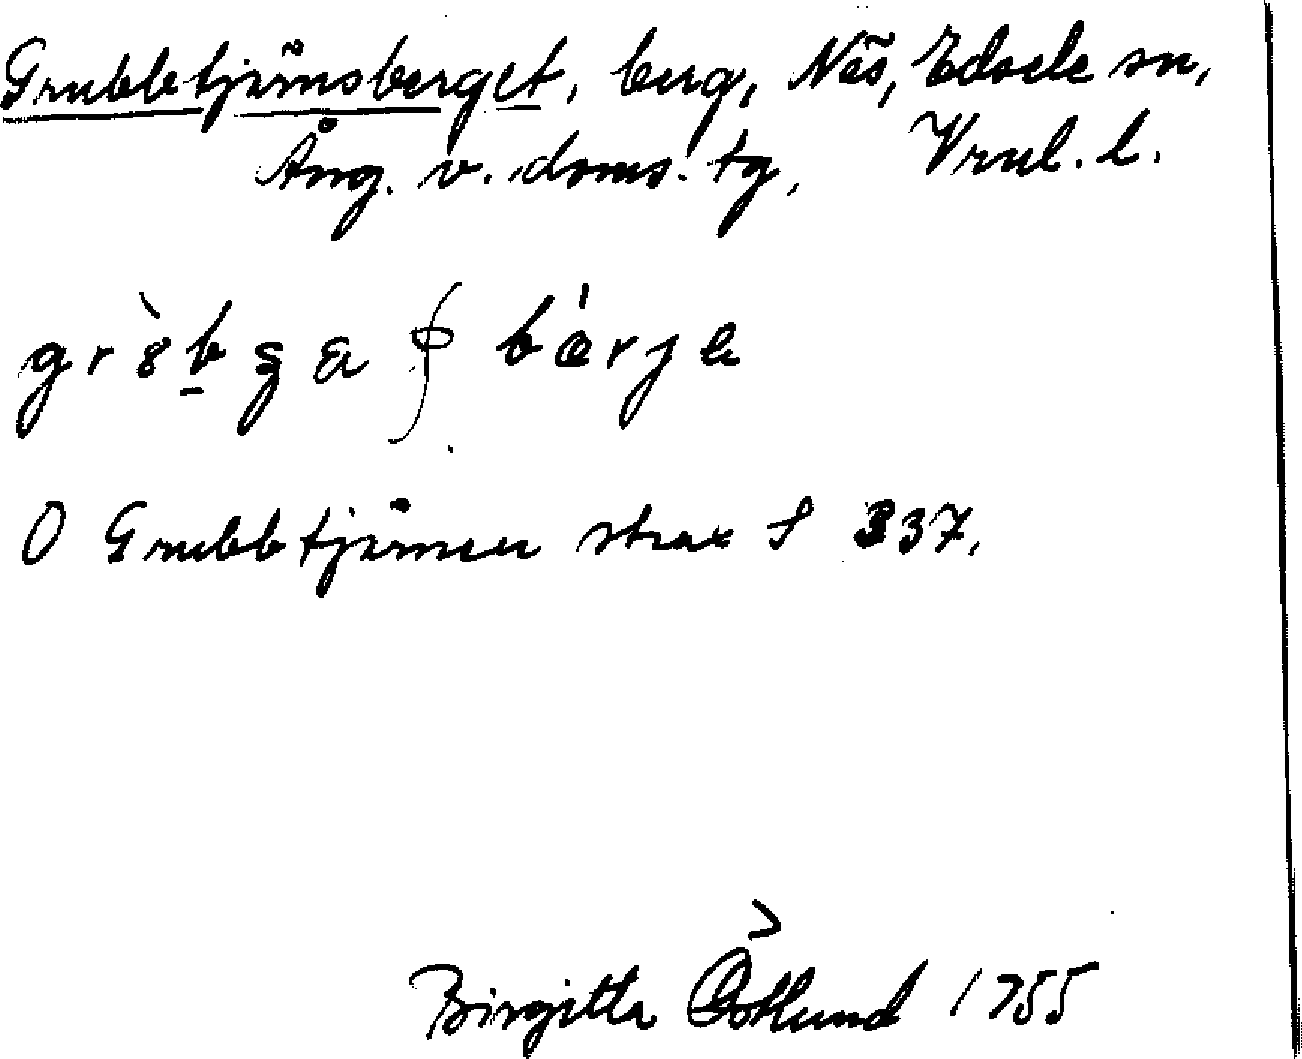 Grubbtjärnsberget, berg, Näs, Edsele sn,
Ång. v. doms. tg, Vrnl. l.
O Grubbtjärnen strax S 337.
Birgitta Östlund 1955